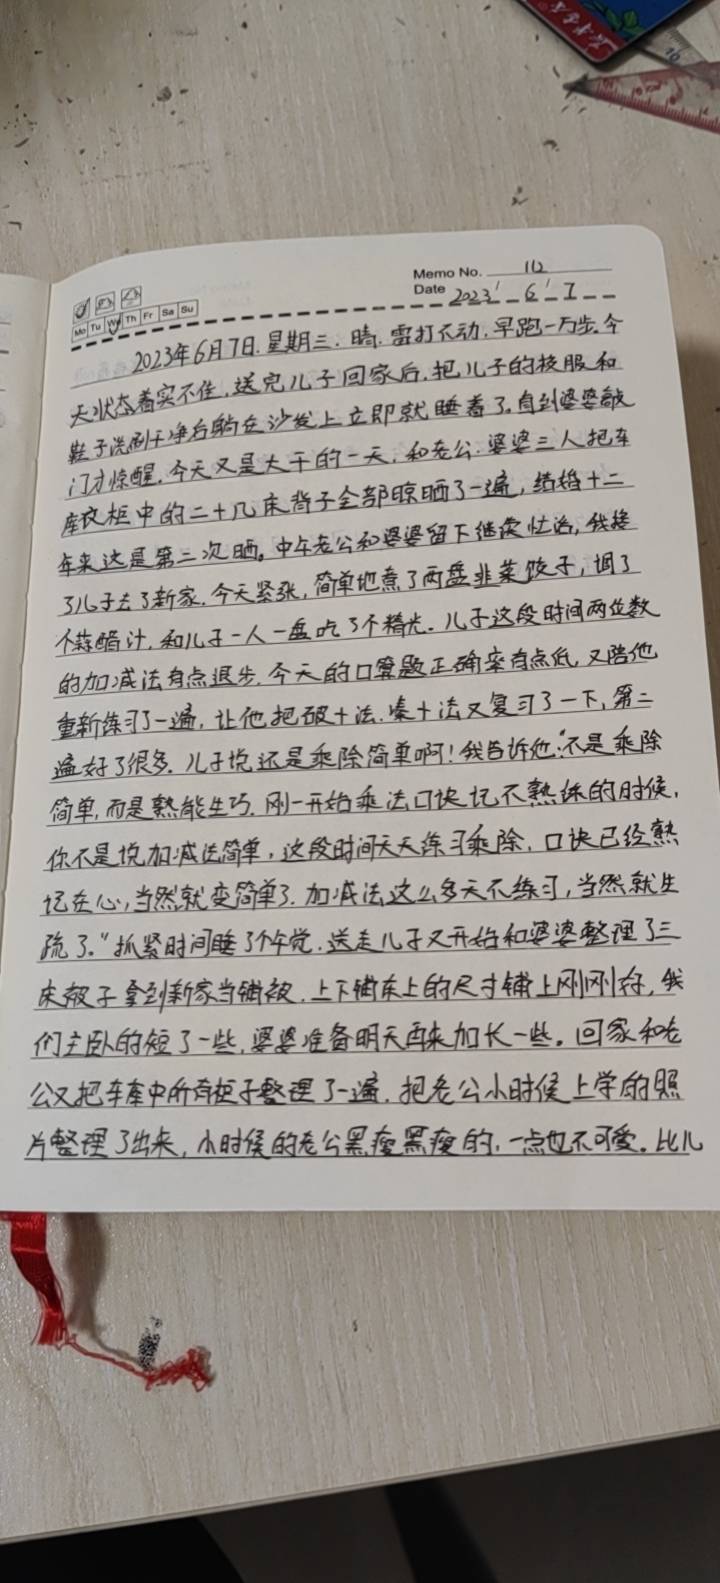 Memo No. 112
Mo Tu We Th Fr Sa Su
Date 2023 / 6 / 7
2023年6月7日.星期三.晴.雷打不动.早跑一万步.今
天状态着实不佳,送完儿子回家后.把儿子的校服和
鞋子洗刷干净后躺在沙发上立即就睡着了.直到婆婆敲
门才惊醒.今天又是大干的一天,和老公.婆婆三人把车
库衣柜中的二十几床背子全部晾晒了一遍,结婚十二
年来这是第二次晒。中午老公和婆婆留下继续忙活,我接
了儿子去了新家.今天紧张,简单地煮了两盘韭菜饺子,调了
个蒜醋汁,和儿子一人一盘吃了个精光.儿子这段时间两位数
的加减法有点退步.今天的口算题正确率有点低,又陪他
重新练习了一遍,让他把破十法.凑十法又复习了一下,第二
遍好了很多.儿子说还是乘除简单啊!我告诉他:"不是乘除
简单,而是熟能生巧.刚一开始乘法口诀记不熟练的时候,
你不是说加减法简单,这段时间天天练习乘除,口诀已经熟
记在心,当然就变简单了.加减法这么多天不练习,当然就生
疏了."抓紧时间睡了个午觉.送走儿子又开始和婆婆整理了三
床被子拿到新家当铺被.上下铺床上的尺寸铺上刚刚好,我
们主卧的短了一些,婆婆准备明天再来加长一些。回家和老
公又把车库中所有柜子整理了一遍.把老公小时候上学的照
片整理了出来,小时候的老公黑瘦黑瘦的,一点也不可爱。比儿